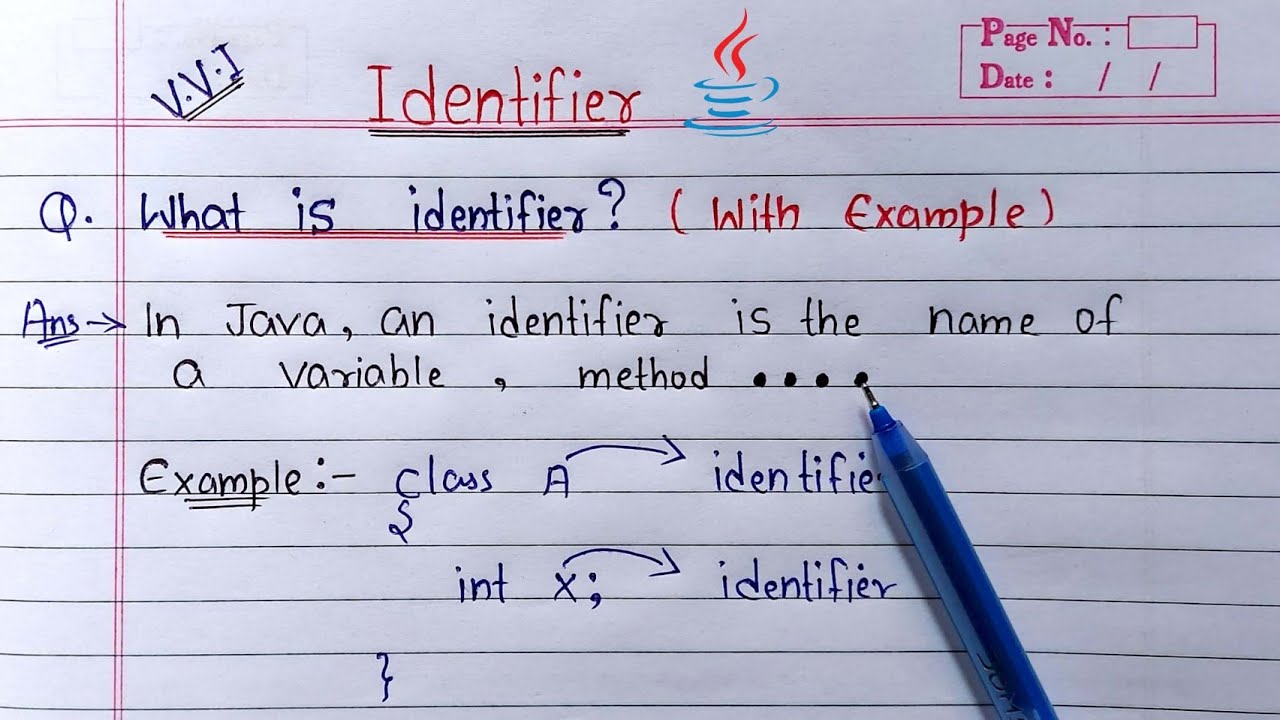 V.V.I
Identifier
Page No. :
Date : / /
Q. What is identifier? (With Example)
Ans → In Java, an identifier is the name of
a variable, method ....
Example:- class A → identifie
{
int x; → identifier
}